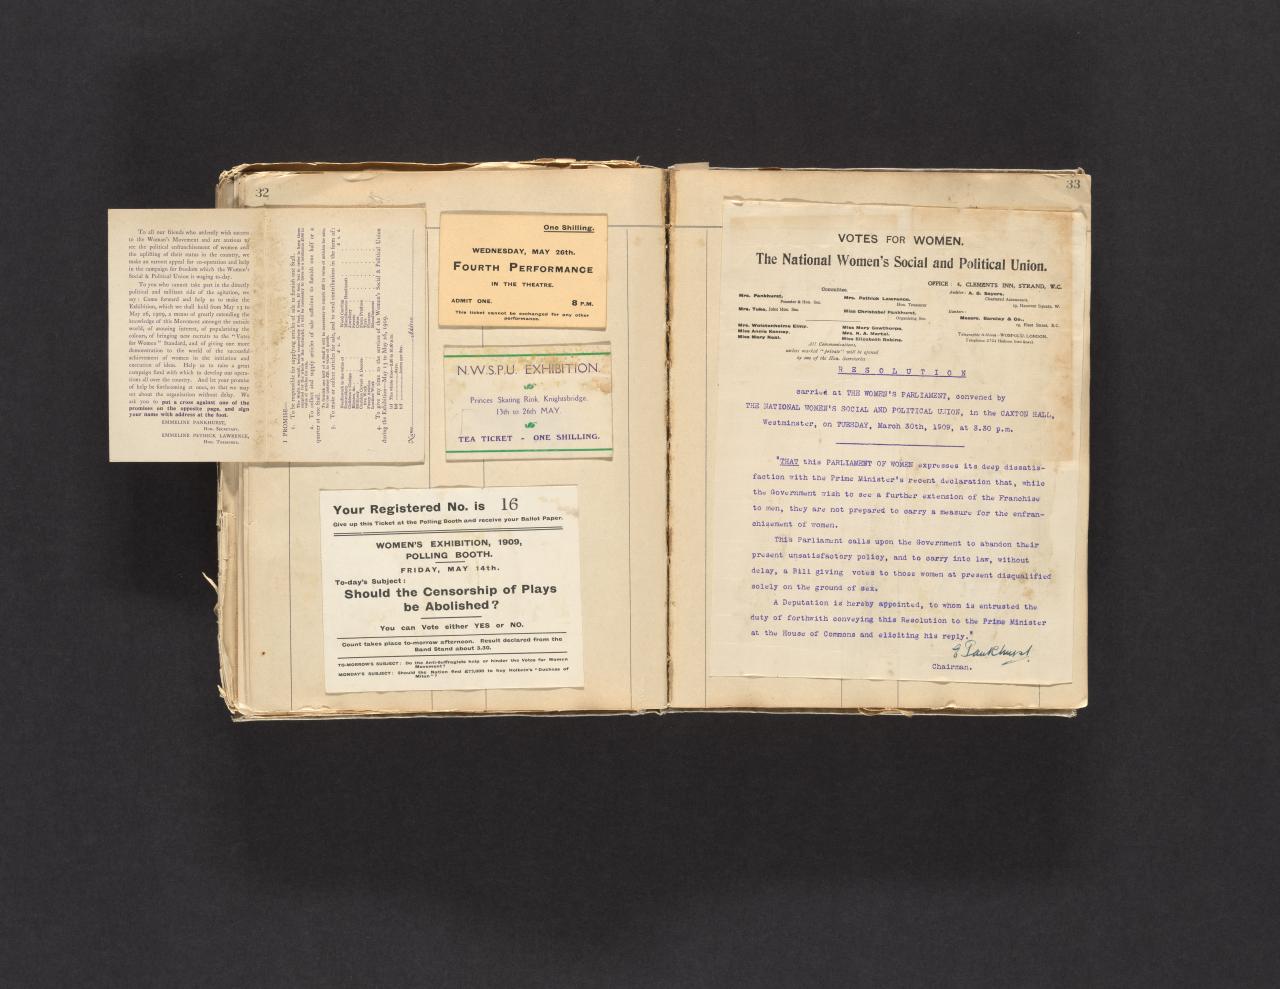 32
To all our friends who ardently wish success
to the Woman's Movement and are anxious to
see the political enfranchisement of women and
the uplifting of their status in the country, we
make an earnest appeal for co-operation and help
in the campaign for freedom which the Women's
Social & Political Union is waging to-day.
To you who cannot take part in the directly
political and militant side of the agitation, we
say: Come forward and help us to make the
Exhibition, which we shall hold from May 13 to
May 26, 1909, a means of greatly extending the
knowledge of this Movement amongst the outside
world, of arousing interest, of popularising the
colours, of bringing new recruits to the "Votes
for Women" Standard, and of giving one more
demonstration to the world of the successful
achievement of women in the initiation and
execution of ideas. Help us to raise a great
campaign fund with which to develop our opera-
tions all over the country. And let your promise
of help be forthcoming at once, so that we may
set about the organisation without delay. We
ask you to put a cross against one of the
promises on the opposite page, and sign
your name with address at the foot.
EMMELINE PANKHURST,
Hon. Secretary.
EMMELINE PETHICK LAWRENCE,
Hon. Treasurer.
I PROMISE—
1. To be responsible for supplying articles of sale to furnish one Stall.
2. To collect and supply articles of sale sufficient to furnish one half or a
quarter of one Stall.
3. To make or collect articles for sale, and to send contributions in the form of:
4. To give my time to the service of the Women's Social & Political Union
during the Exhibition—May 13 to May 26, 1909.
Name
Address
One Shilling.
WEDNESDAY, MAY 26th.
FOURTH PERFORMANCE
IN THE THEATRE.
ADMIT ONE. 8 P.M.
This ticket cannot be exchanged for any other
performance.
N.W.S.P.U. EXHIBITION.
Princes Skating Rink, Knightsbridge.
13th to 26th MAY.
TEA TICKET - ONE SHILLING.
Your Registered No. is 16
Give up this Ticket at the Polling Booth and receive your Ballot Paper.
WOMEN'S EXHIBITION, 1909,
POLLING BOOTH.
FRIDAY, MAY 14th.
To-day's Subject:
Should the Censorship of Plays
be Abolished?
You can Vote either YES or NO.
Count takes place to-morrow afternoon. Result declared from the
Band Stand about 3.30.
TO-MORROW'S SUBJECT: Do the Anti-Suffragists help or hinder the Votes for Women
Movement?
MONDAY'S SUBJECT: Should the Nation find £73,000 to buy Holbein's "Duchess of
Milan"?
33
VOTES FOR WOMEN.
The National Women's Social and Political Union.
OFFICE: 4, CLEMENTS INN, STRAND, W.C.
Committee.
Auditor: A. G. Sayers,
Chartered Accountant,
19, Hanover Square, W.
Mrs. Pankhurst,
Founder & Hon. Sec.
Mrs. Pethick Lawrence,
Hon. Treasurer
Mrs. Tuke, Joint Hon. Sec.
Miss Christabel Pankhurst,
Organising Sec.
Bankers:
Messrs. Barclay & Co.,
19, Fleet Street, E.C.
Mrs. Wolstenholme Elmy.
Miss Mary Gawthorpe.
Miss Annie Kenney.
Mrs. N. A. Martel.
Miss Mary Neal.
Miss Elizabeth Robins.
Telegraphic Address:—WOSPOLU, LONDON.
Telephone 2724 Holborn (two lines).
All Communications,
unless marked "private" will be opened
by one of the Hon. Secretaries
RESOLUTION
carried at THE WOMEN'S PARLIAMENT, convened by
THE NATIONAL WOMEN'S SOCIAL AND POLITICAL UNION, in the CAXTON HALL,
Westminster, on TUESDAY, March 30th, 1909, at 3.30 p.m.
"THAT this PARLIAMENT OF WOMEN expresses its deep dissatis-
faction with the Prime Minister's recent declaration that, while
the Government wish to see a further extension of the Franchise
to men, they are not prepared to carry a measure for the enfran-
chisement of women.
This Parliament calls upon the Government to abandon their
present unsatisfactory policy, and to carry into law, without
delay, a Bill giving votes to those women at present disqualified
solely on the ground of sex.
A Deputation is hereby appointed, to whom is entrusted the
duty of forthwith conveying this Resolution to the Prime Minister
at the House of Commons and eliciting his reply."
E Pankhurst
Chairman.